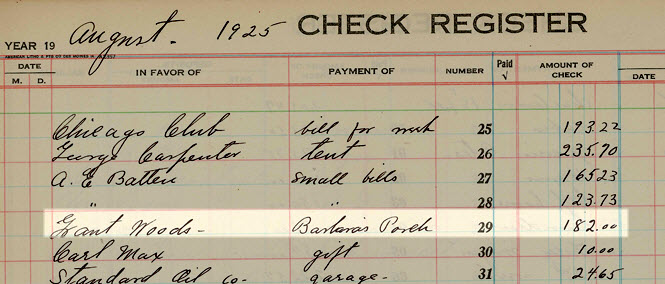 August. 1925 CHECK REGISTER
YEAR 19
DATE IN FAVOR OF PAYMENT OF NUMBER Paid √ AMOUNT OF CHECK DATE
M. D.
Chicago Club bill for 25 193.22
George Carpenter tent 26 235.70
A. E. Batten small bills 27 165.23
" " 28 123.73
Grant Woods- Barbara's Porch 29 182.00
Carl Max gift 30 10.00
Standard Oil Co- garage- 31 24.65